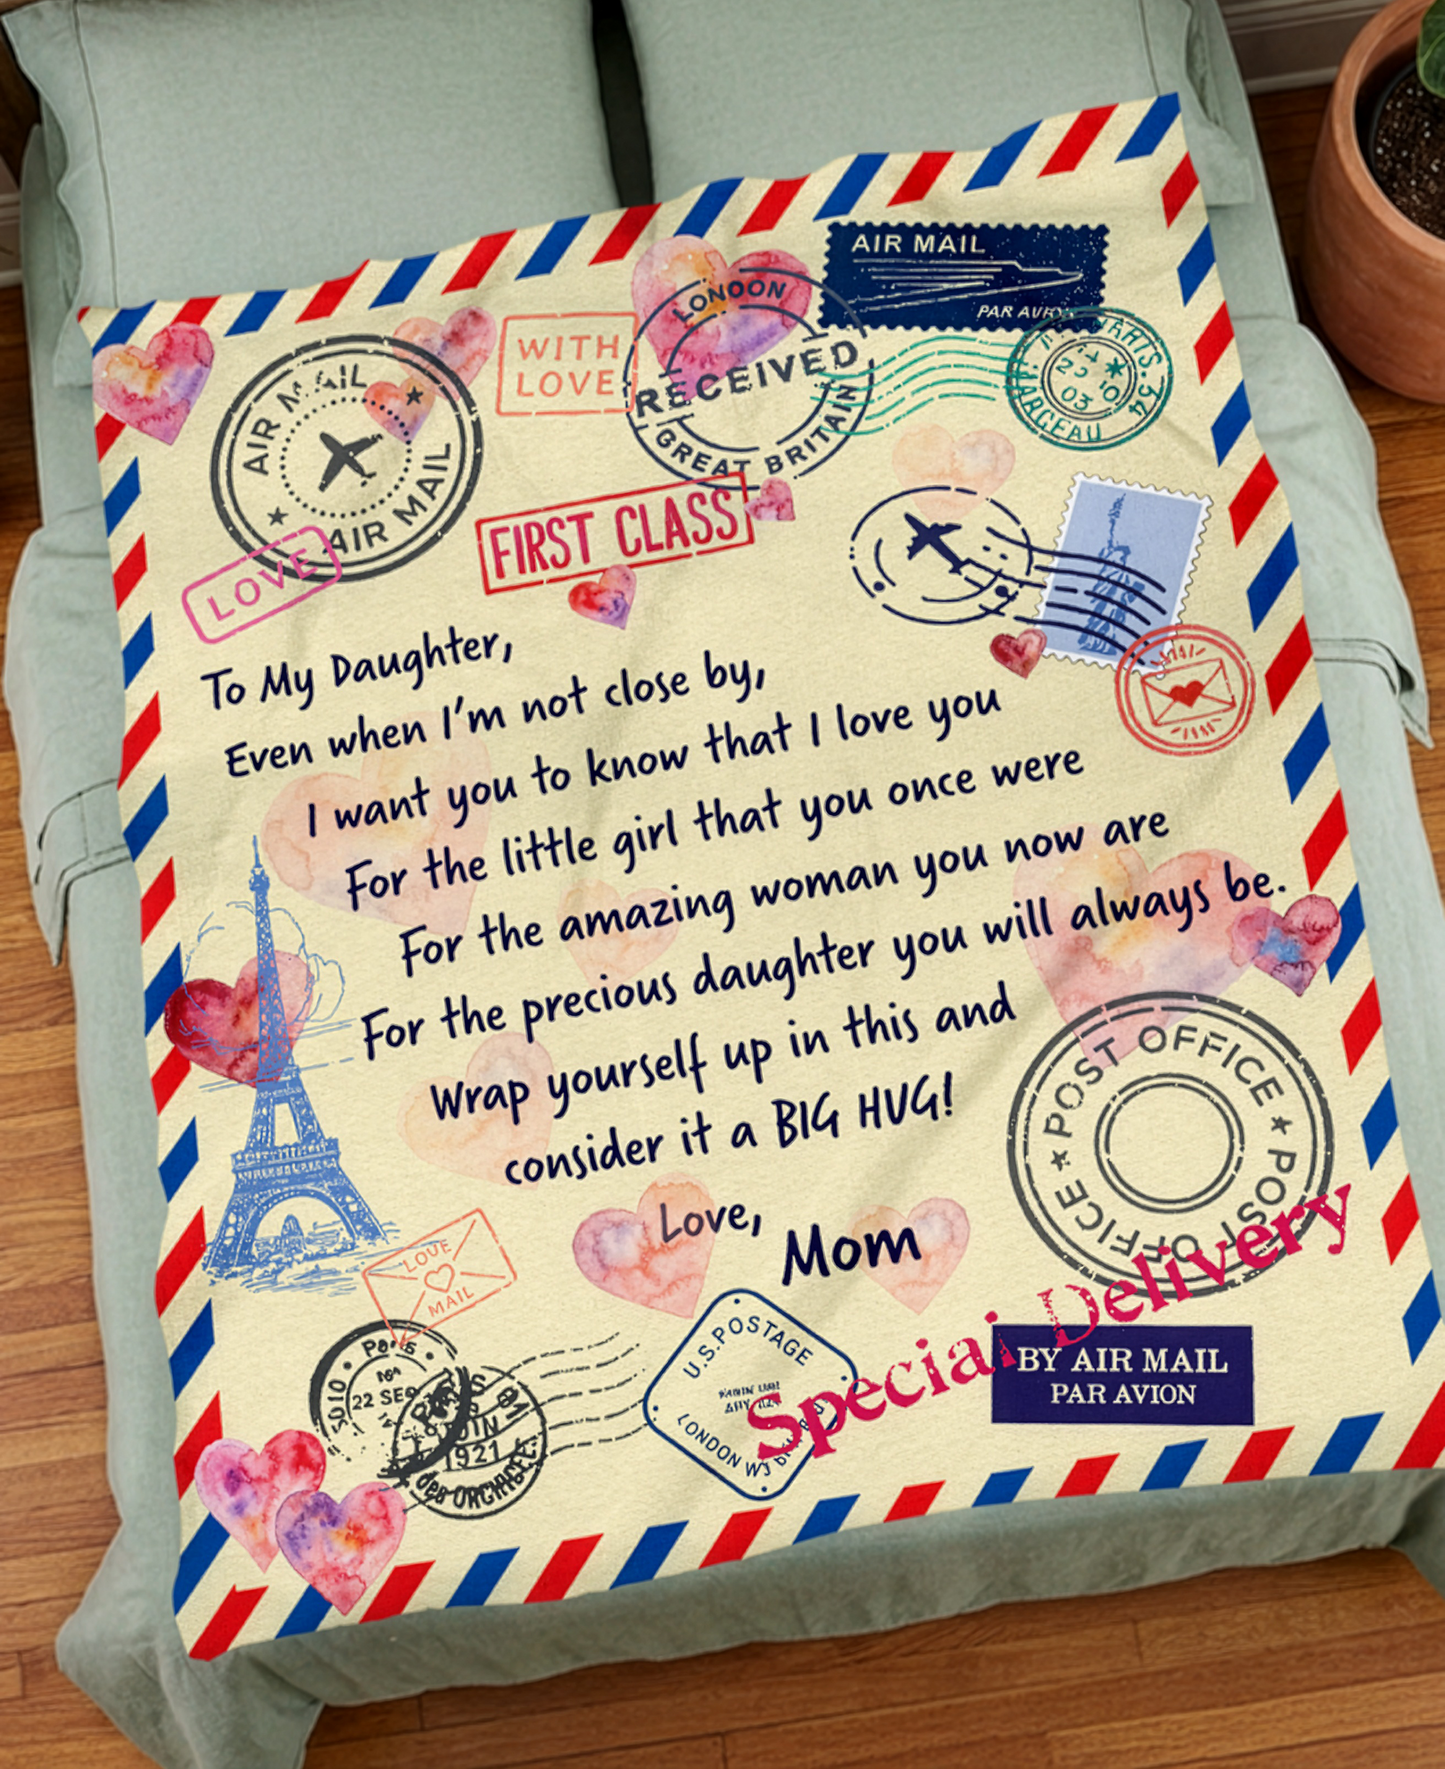 AIR MAIL
PAR AVION
WITH
LOVE
LONDON
RECEIVED
GREAT BRITAIN
AIR MAIL
AIR MAIL
FIRST CLASS
LOVE
To My Daughter,
Even when I'm not close by,
I want you to know that I love you
For the little girl that you once were
For the amazing woman you now are
For the precious daughter you will always be.
Wrap yourself up in this and
consider it a BIG HUG!
Love,
Mom
POST OFFICE
POST OFFICE
LOVE
MAIL
Paris
22 SEP
JUIN
1921
U.S.POSTAGE
LONDON
Special Delivery
BY AIR MAIL
PAR AVION